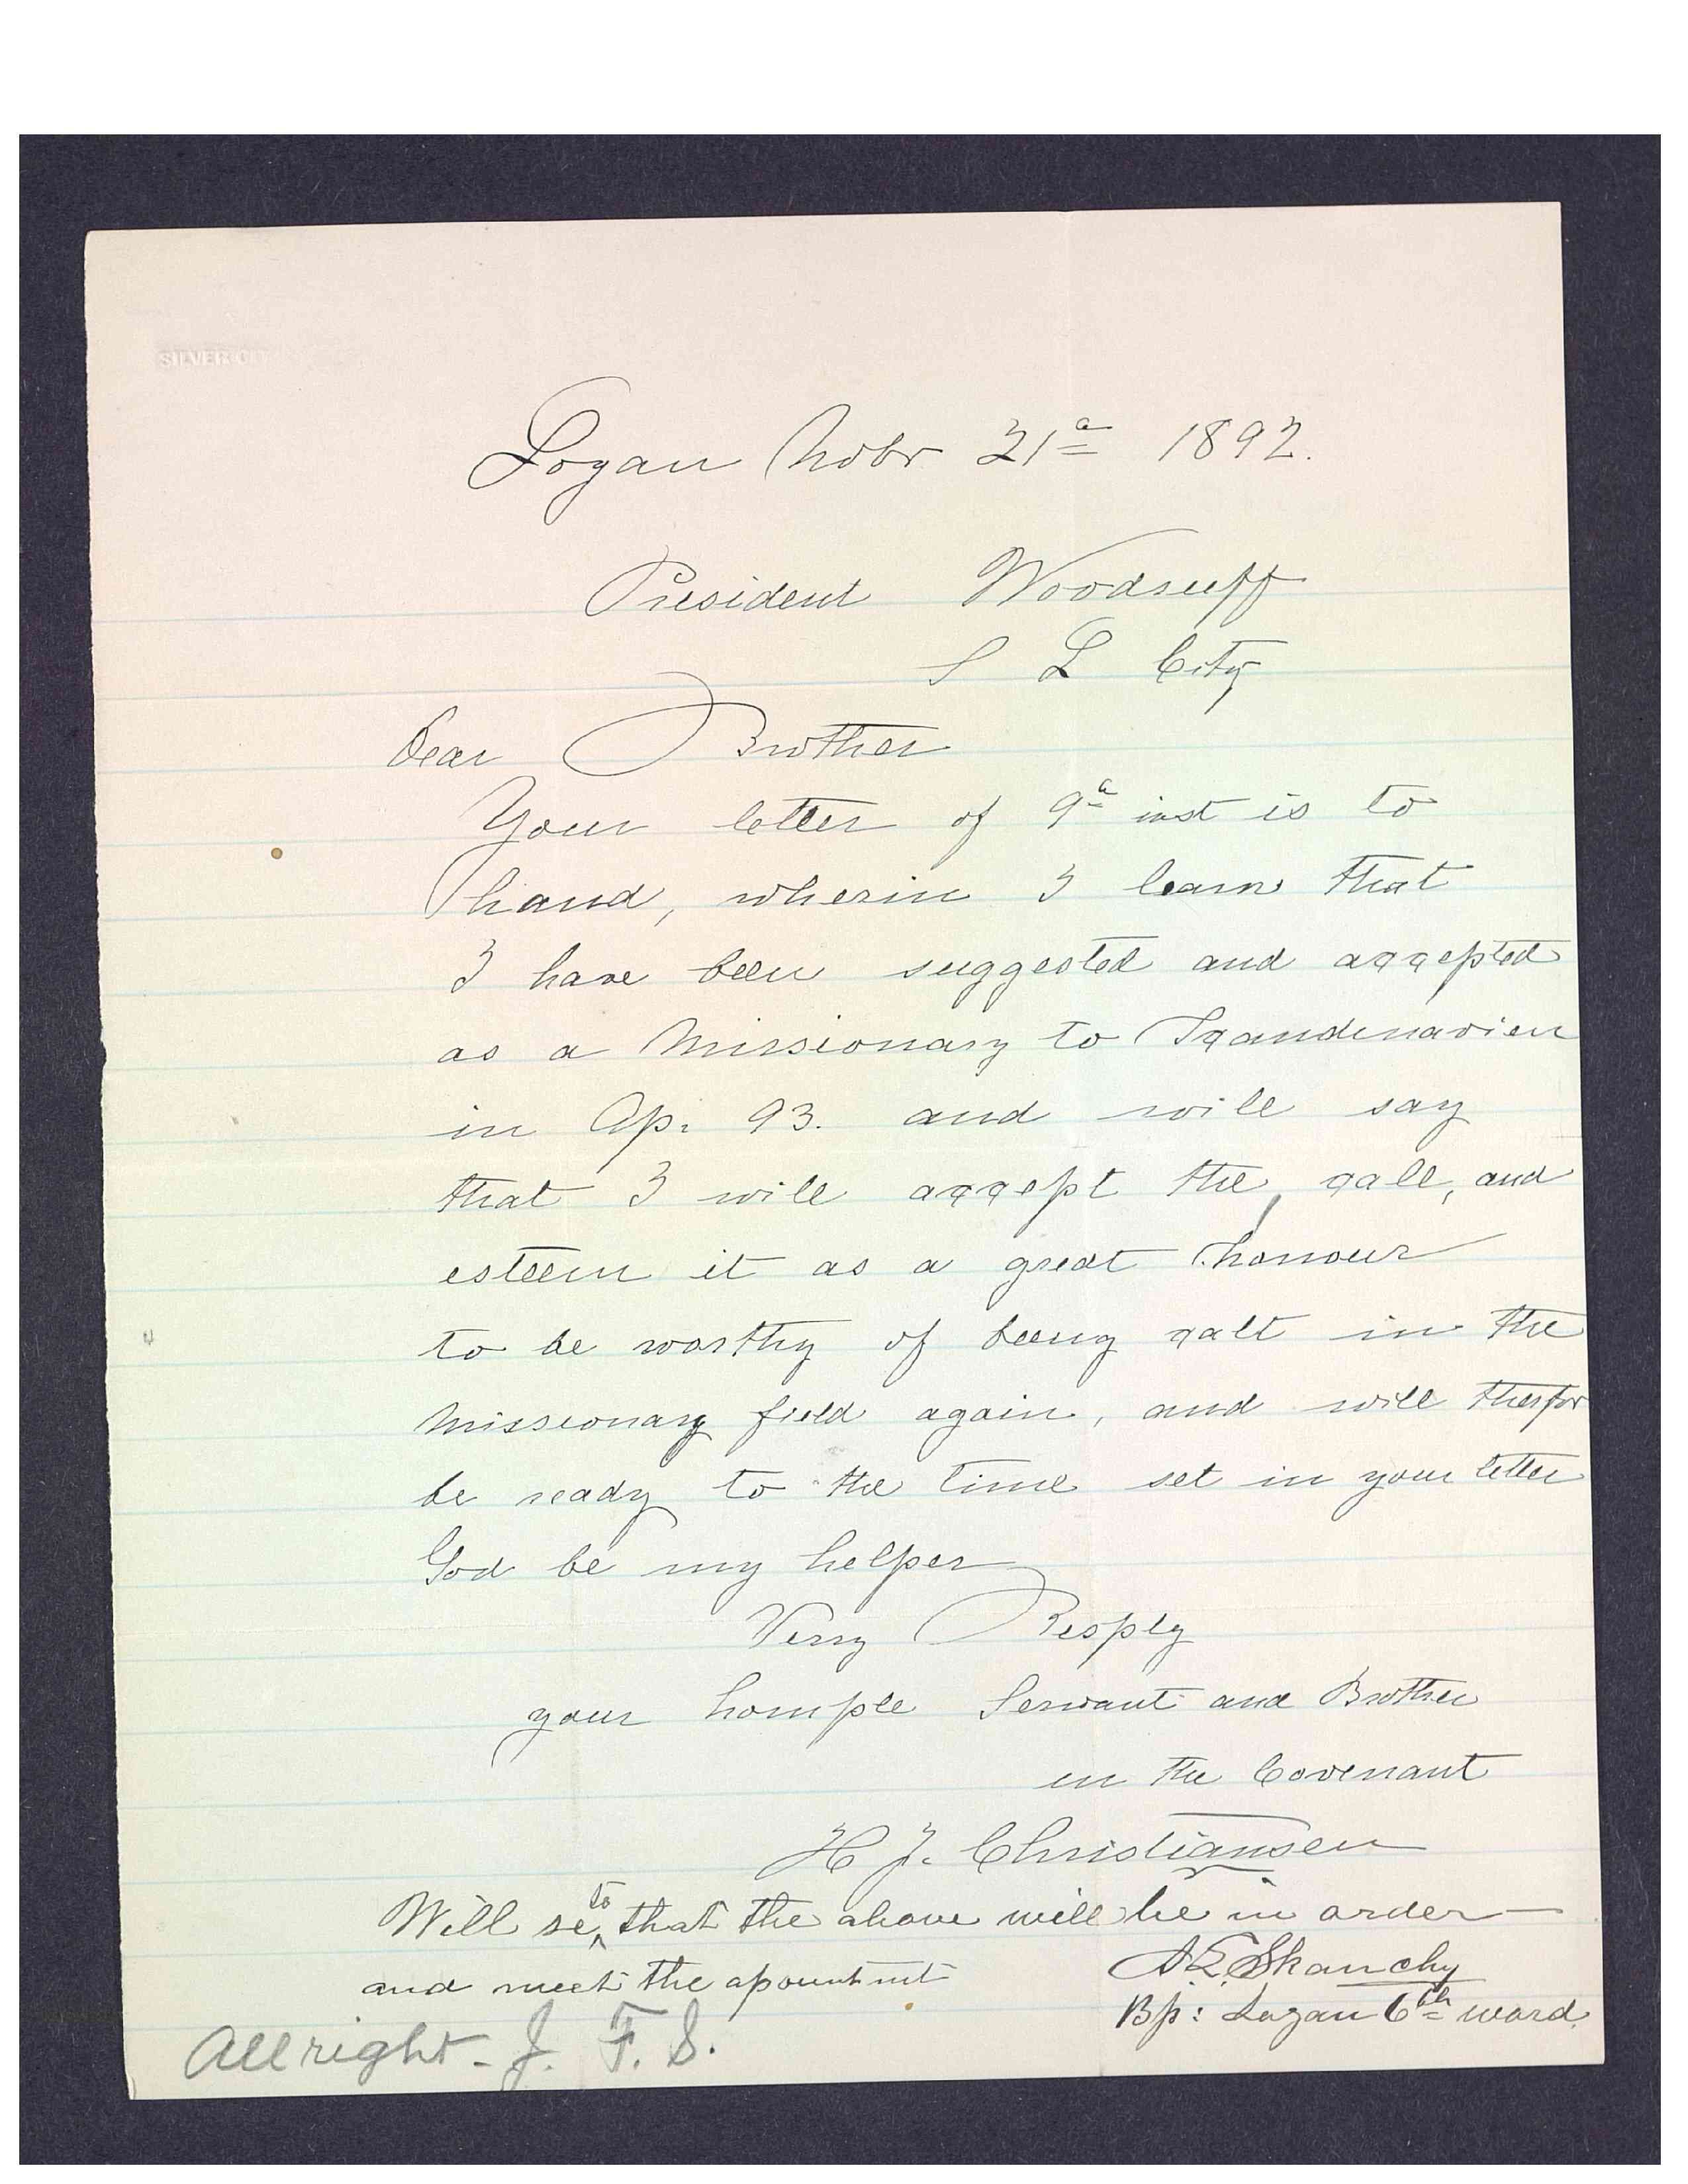 SILVER CI
Logan Nobr 21a 1892.
President Woodruff
S L City
Dear Brother
Your letter of 9a inst is to
hand, wherin I learn that
I have been suggested and accepted
as a Missionary to Scandenavien
in Ap. 93. and will say
that I will accept the call, and
esteem it as a great honour
to be worthy of being calt in the
Missionary field again, and will therfor
be ready to the time set in your letter
God be my helper
Verry Resply
your homple Servant and Brother
in the Covenant
H J. Christiansen
Will se to that the above will be in order
and meet the apountmt
Bp: Logan 6th ward
Skanchy
All right - J. F. S.